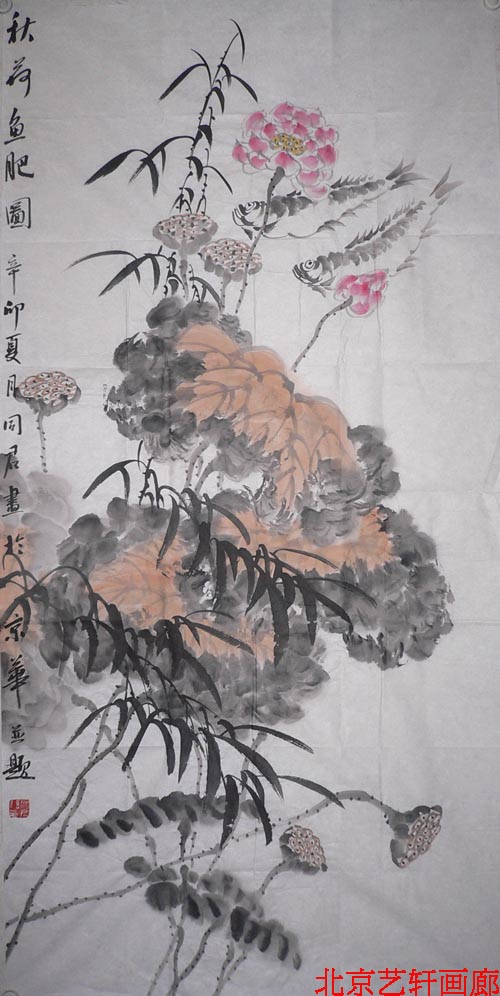 秋荷鱼肥圖 辛卯夏月同居畫於京華並題
北京艺轩画廊